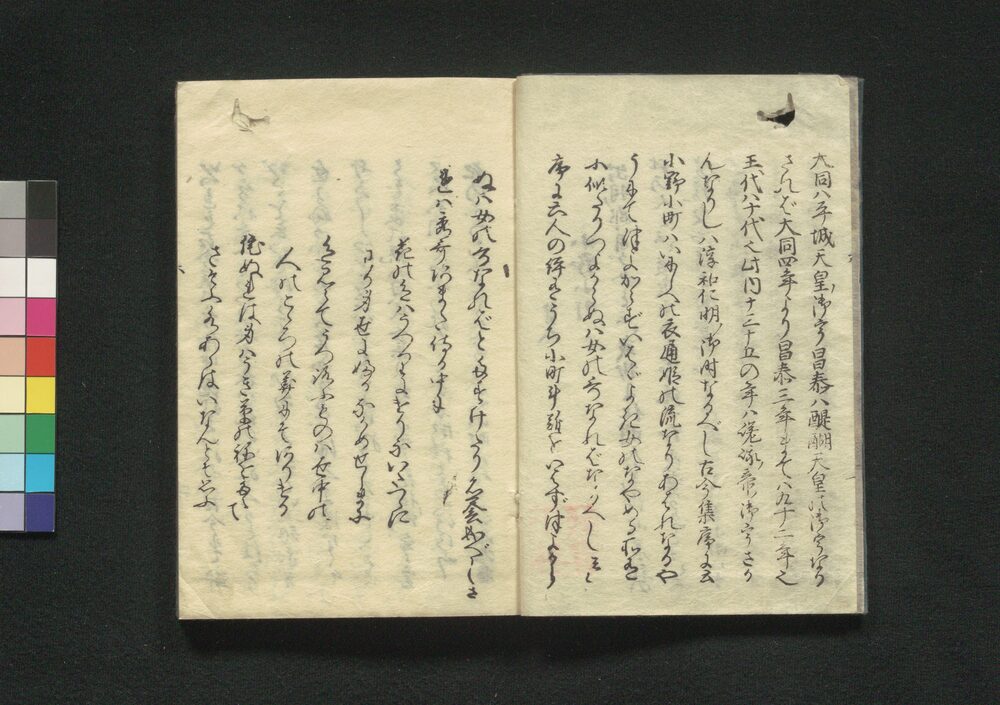 大同ハ平城天皇ノ御宇昌泰ハ醍醐天皇ノ御宇なり
されば大同四年より昌泰三年まで八九十二年也
王代八十代也此内十三十五の年ハ嵯峨帝ノ御宇さか
んなりしハ淳和仁明ノ御時なるべし古今集序ニ云
小野小町ハいにしへの衣通姫の流なりあはれなるや
うにてつよからずいはばよき女のなやめる所有
に似たりつよからぬハ女の哥なればなるべしと云
序に六人の評有うち小町計難をいはずつよから
ぬハ女の哥なればとたすけたる
花の色はうつりにけりないたづらに
我か身世にふるながめせしまに
色見えてうつろふものハ世中の
人のこころの花にそ有ける
侘ぬれは身ハうき草の根をたえて
さそふ水あらはいなんとそ思ふ